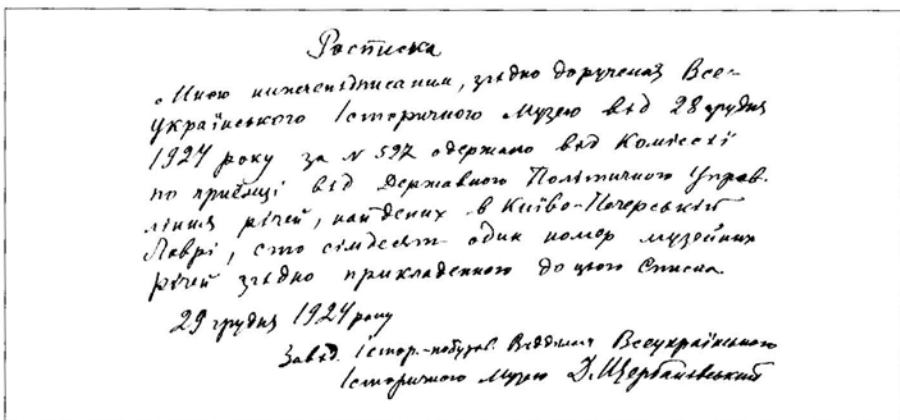 Росписка
Мною нижчепідписаним, згідно доручення Все-
українського Історичного Музею від 28 грудня
1924 року за N 597 одержано від Комісії
по приємці від Державного Політичного Управ-
ління річей, найдених в Київо-Печерській
Лаврі, сто сімдесят один номер музейних
річей згідно прикладенного до цього Списка.
29 грудня 1924 року
Завід. Істор.-побутов. Відділом Всеукраїнського
Історичного Музею Д. Щербаківський